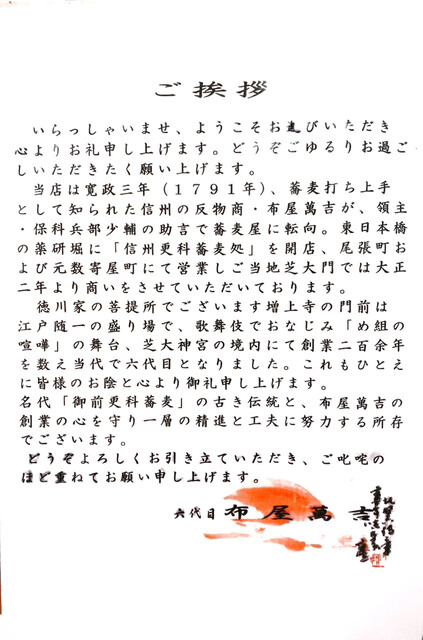 ご挨拶
いらっしゃいませ、ようこそお運びいただき
心よりお礼申し上げます。どうぞごゆるりお過ご
しいただきたく願い上げます。
当店は寛政三年（１７９１年）、蕎麦打ち上手
として知られた信州の反物商・布屋萬吉が、領主
・保科兵部少輔の助言で蕎麦屋に転向。東日本橋
の薬研堀に「信州更科蕎麦処」を開店、尾張町お
よび元数寄屋町にて営業しご当地芝大門では大正
二年より商いをさせていただいております。
徳川家の菩提所でございます増上寺の門前は
江戸随一の盛り場で、歌舞伎でおなじみ「め組の
喧嘩」の舞台、芝大神宮の境内にて創業二百余年
を数え当代で六代目となりました。これもひとえ
に皆様のお陰と心より御礼申し上げます。
名代「御前更科蕎麦」の古き伝統と、布屋萬吉の
創業の心を守り一層の精進と工夫に努力する所存
でございます。
どうぞよろしくお引き立ていただき、ご叱咤の
ほど重ねてお願い申し上げます。
六代目 布屋萬吉